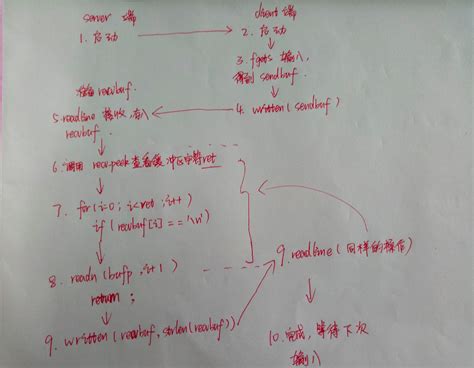 server 端
client 端
1. 启动
2. 启动
3. fgets 输入,
得到 sendbuf
准备 recvbuf.
4. writen(sendbuf)
5. readline 接收,存入
recvbuf.
6. 调用 recv_peek 查看缓冲区中等ret
7. for(i=0; i<ret; i++)
if (recvbuf[i]=='\n')
8. readn(bufp, i+1)
return ;
9. readline(同样的操作)
9. writen(recvbuf, strlen(recvbuf))
10. 完成, 等待下次
输入